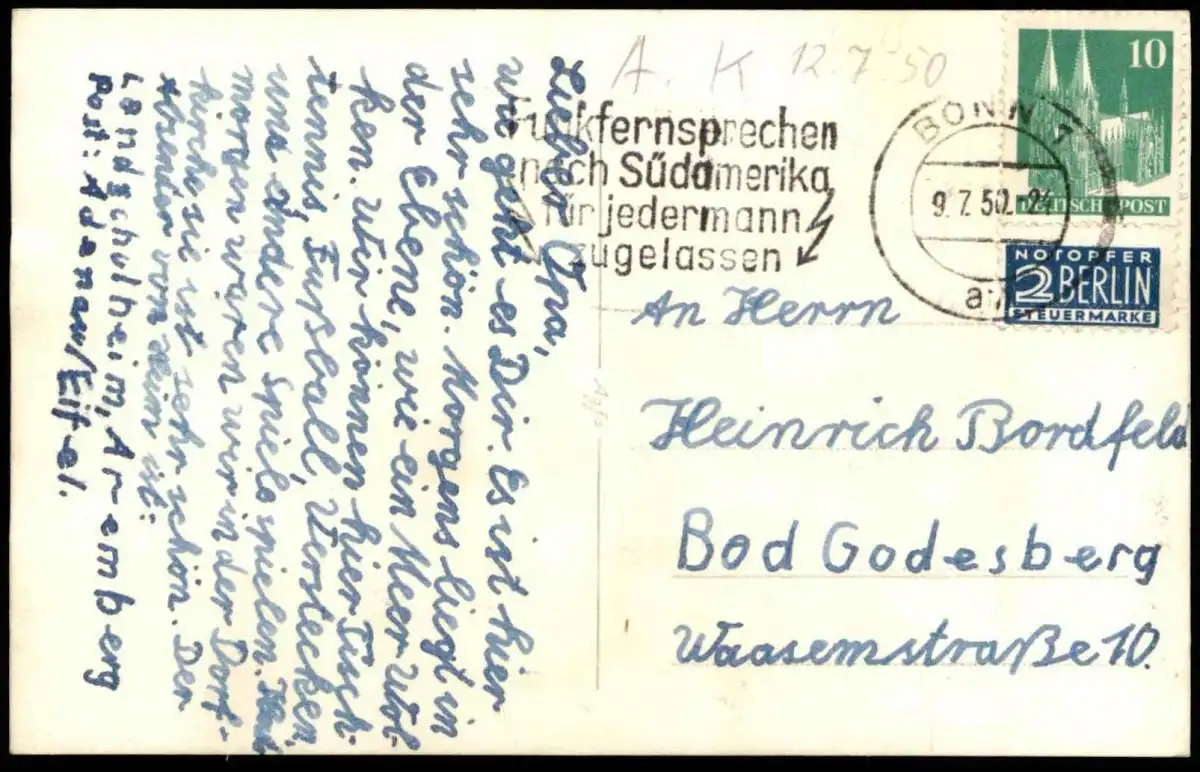 Lieber Opa,
wie geht es Dir. Es ist hier
sehr schön. Morgens liegt in
der Ebene, wie ein Meer Wol-
ken. Wir können hier Tisch-
tennis, Fußball, Verstecken
und andere Spiele spielen. Heute
morgen waren wir in der Dorf-
kirche sie ist sehr schön. Der
Absender vom Heim ist:
Landschulheim, Aremberg
Post: Adenau/Eifel.
A. K 12.7.50
Funkfernsprechen
nach Südamerika
für jedermann
zugelassen
BONN 1
9.7.50.-24
10
DEUTSCHE POST
NOTOPFER
2 BERLIN
STEUERMARKE
An Herrn
Heinrich Bordfeld
Bad Godesberg
Waasemstraße 10.